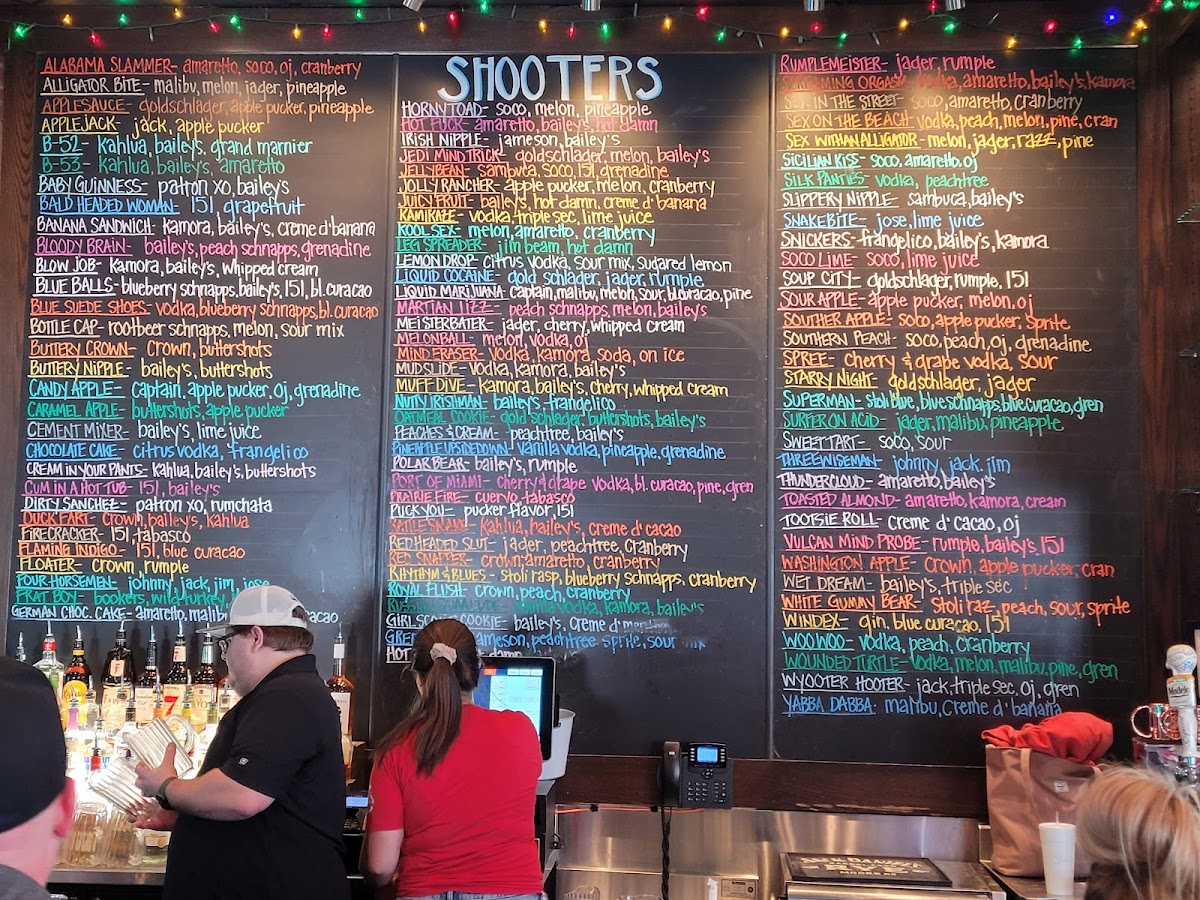 SHOOTERS
ALABAMA SLAMMER- amaretto, soco, oj, cranberry
ALLIGATOR BITE- malibu, melon, jager, pineapple
APPLESAUCE- goldschlager, apple pucker, pineapple
APPLEJACK- jack, apple pucker
B-52- kahlua, bailey's, grand marnier
B-53- kahlua, bailey's, amaretto
BABY GUINNESS- patron xo, bailey's
BALD HEADED WOMAN- 151, grapefruit
BANANA SANDWICH- kamora, bailey's, creme d'banana
BLOODY BRAIN- bailey's, peach schnapps, grenadine
BLOW JOB- kamora, bailey's, whipped cream
BLUE BALLS- blueberry schnapps, bailey's, 151, bl. curacao
BLUE SUEDE SHOES- vodka, blueberry schnapps, bl. curacao
BOTTLE CAP- rootbeer schnapps, melon, sour mix
BUTTERY CROWN- crown, buttershots
BUTTERY NIPPLE- bailey's, buttershots
CANDY APPLE- captain, apple pucker, oj, grenadine
CARAMEL APPLE- buttershots, apple pucker
CEMENT MIXER- bailey's, lime juice
CHOCOLATE CAKE- citrus vodka, frangelico
CREAM IN YOUR PANTS- kahlua, bailey's, buttershots
CUM IN A HOT TUB- 151, bailey's
DIRTY SANCHEZ- patron xo, rumchata
DUCK FART- crown, bailey's, kahlua
FIRECRACKER- 151, tabasco
FLAMING INDIGO- 151, blue curacao
FLOATER- crown, rumple
FOUR HORSEMEN- johnny, jack, jim, jose
FRAT BOY- bookers, wild turkey,
GERMAN CHOC. CAKE- amaretto, malibu
HORNY TOAD- soco, melon, pineapple
HOT FUCK- amaretto, bailey's, hot damn
IRISH NIPPLE- jameson, bailey's
JEDI MIND TRICK- goldschlager, melon, bailey's
JELLYBEAN- sambuca, soco, 151, grenadine
JOLLY RANCHER- apple pucker, melon, cranberry
JUICY FRUIT- bailey's, hot damn, creme d' banana
KAMIKAZE- vodka, triple sec, lime juice
KOOL SEX- melon, amaretto, cranberry
LEG SPREADER- jim beam, hot damn
LEMON DROP- citrus vodka, sour mix, sugared lemon
LIQUID COCAINE- gold schlager, jager, rumple
LIQUID MARIJUANA- captain, malibu, melon, sour, bl. curacao, pine
MARTIAN TIZZ- peach schnapps, melon, bailey's
MEISTERBATER- jager, cherry, whipped cream
MELONBALL- melon, vodka, oj
MIND ERASER- vodka, kamora, soda, on ice
MUDSLIDE- vodka, kamora, bailey's
MUFF DIVE- kamora, bailey's, cherry, whipped cream
NUTY IRISHMAN- bailey's, frangelico
OATMEAL COOKIE- gold schlager, buttershots, bailey's
PEACHES & CREAM- peachtree, bailey's
PINEAPPLE UPSIDEDOWN- vanilla vodka, pineapple, grenadine
POLAR BEAR- bailey's, rumple
PORT OF MIAMI- cherry & grape vodka, bl. curacao, pine, gren
PRAIRIE FIRE- cuervo, tabasco
PUCK YOU- pucker flavor, 151
RATTLE SNAKE- kahlua, bailey's, creme d' cacao
REDHEADED SLUT- jager, peachtree, cranberry
RED SNAPPER- crown, amaretto, cranberry
RHYTHYM & BLUES- stoli rasp, blueberry schnapps, cranberry
ROYAL FLUSH- crown, peach, cranberry
vanilla vodka, kamora, bailey's
GIRL SCOUT COOKIE- bailey's, creme d' menthe
jameson, peachtree, sprite, sour mix
HOT damn
RUMPLEMEISTER- jager, rumple
SCREAMING ORGASM- vodka, amaretto, bailey's, kamora
SEX IN THE STREET- soco, amaretto, cranberry
SEX ON THE BEACH- vodka, peach, melon, pine, cran
SEX WITH AN ALLIGATOR- melon, jager, razz, pine
SICILIAN KISS- soco, amaretto, oj
SILK PANTIES- vodka, peachtree
SLIPPERY NIPPLE- sambuca, bailey's
SNAKEBITE- jose, lime juice
SNICKERS- frangelico, bailey's, kamora
SOCO LIME- soco, lime juice
SOUP CITY- goldschlager, rumple, 151
SOUR APPLE- apple pucker, melon, oj
SOUTHER APPLE- soco, apple pucker, sprite
SOUTHERN PEACH- soco, peach, oj, grenadine
SPREE- cherry & grape vodka, sour
STARRY NIGHT- goldschlager, jager
SUPERMAN- stoli blue, blue schnapps, blue curacao, gren
SURFER ON ACID- jager, malibu, pineapple
SWEET TART- soco, sour
THREE WISEMAN- johnny, jack, jim
THUNDERCLOUD- amaretto, bailey's
TOASTED ALMOND- amaretto, kamora, cream
TOOTSIE ROLL- creme d' cacao, oj
VULCAN MIND PROBE- rumple, bailey's, 151
WASHINGTON APPLE- crown, apple pucker, cran
WET DREAM- bailey's, triple sec
WHITE GUMMY BEAR- stoli raz, peach, sour, sprite
WINDEX- gin, blue curacao, 151
WOO WOO- vodka, peach, cranberry
WOUNDED TURTLE- vodka, melon, malibu, pine, gren
WYOOTER HOOTER- jack, triple sec, oj, gren
YABBA DABBA- malibu, creme d' banana
Modelo